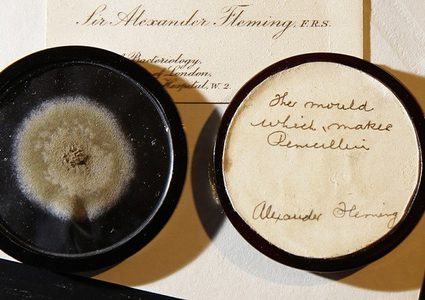 Sir Alexander Fleming, F.R.S.
Bacteriology,
of London.
Hospital, W. 2.
The mould
which makes
Penicillin
Alexander Fleming